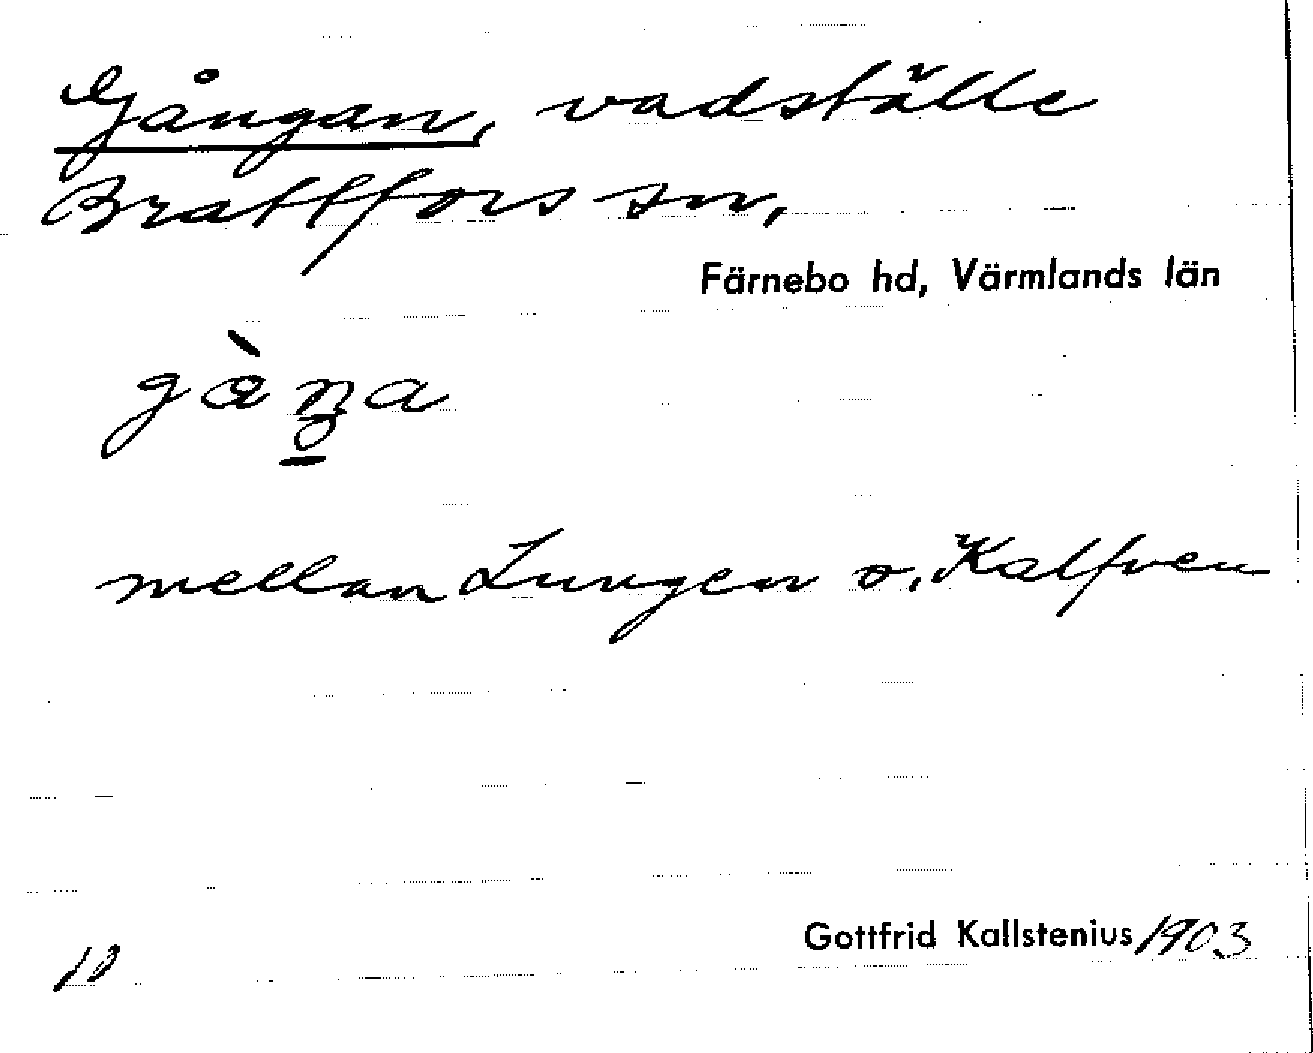 Gångan, vadställe
Brattfors sn,
Färnebo hd, Värmlands län
mellan Lungen o. Kalfven
Gottfrid Kallstenius 1903
10